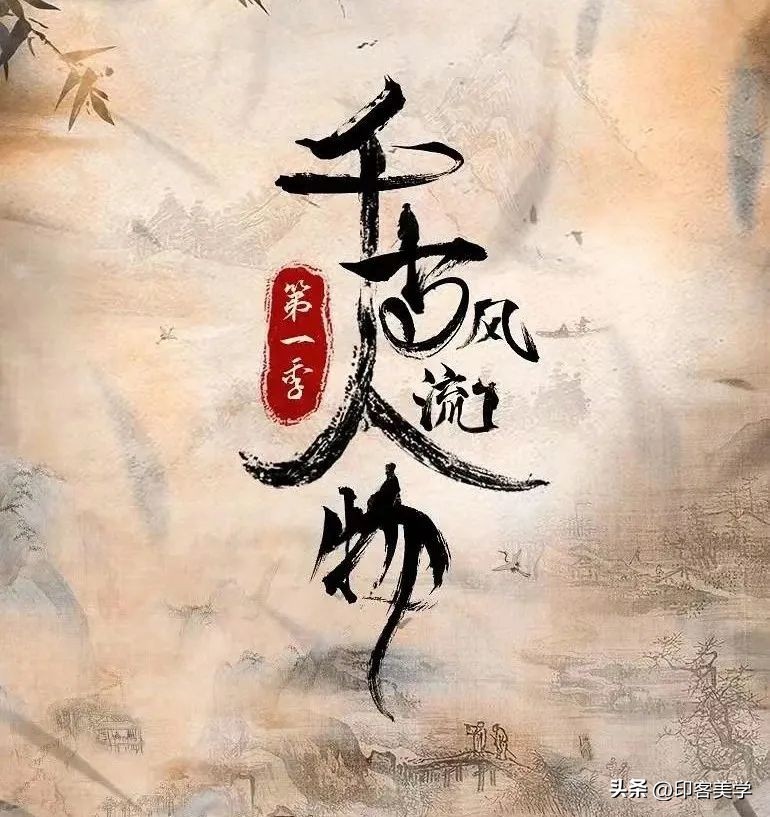 千古风流人物
第一季
头条 @印客美学